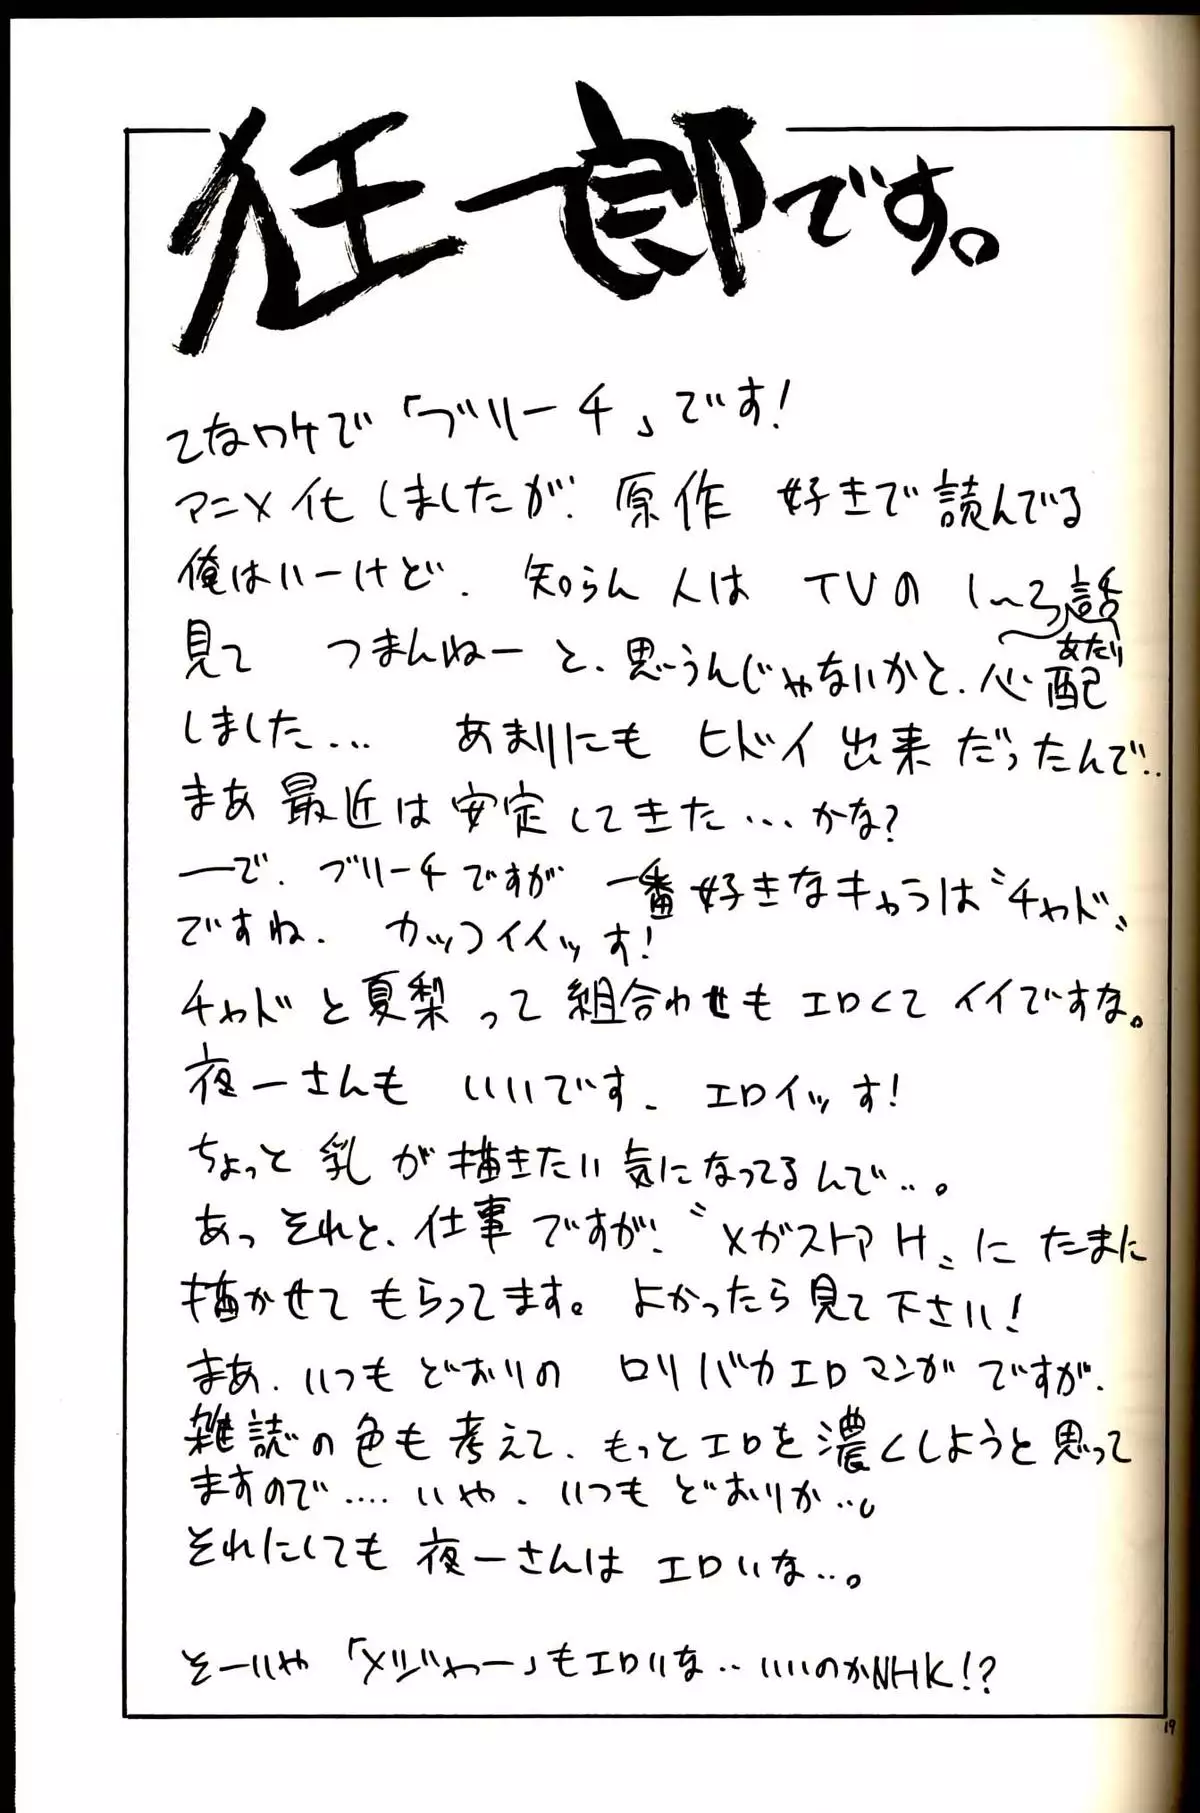 狂一郎です。
てなワケで「ブリーチ」です!
アニメ化しましたが、原作 好きで読んでる
俺はいーけど、知らん人は TVの 1〜3話
あたり
見て つまんねーと、思うんじゃないかと、心配
しました... あまりにも ヒドイ出来だったんで..
まあ最近は安定してきた...かな?
一で、ブリーチですが 一番好きなキャラは〝チャド〟
ですね、カッコイイッす!
チャドと夏梨って組合わせもエロくてイイですな。
夜一さんも いいです、エロイッす!
ちょっと乳が描きたい気になってるんで...。
あっそれと、仕事ですが、〝メガストアH〟にたまに
描かせてもらってます。よかったら見て下さい!
まあ、いつもどおりの ロリバカエロマンガですが、
雑誌の色も考えて、もっとエロを濃くしようと思って
ますので....いや、いつもどおりか...。
それにしても夜一さんは エロいな...。
そーいや「メジャー」もエロいな..いいのかNHK!?
19